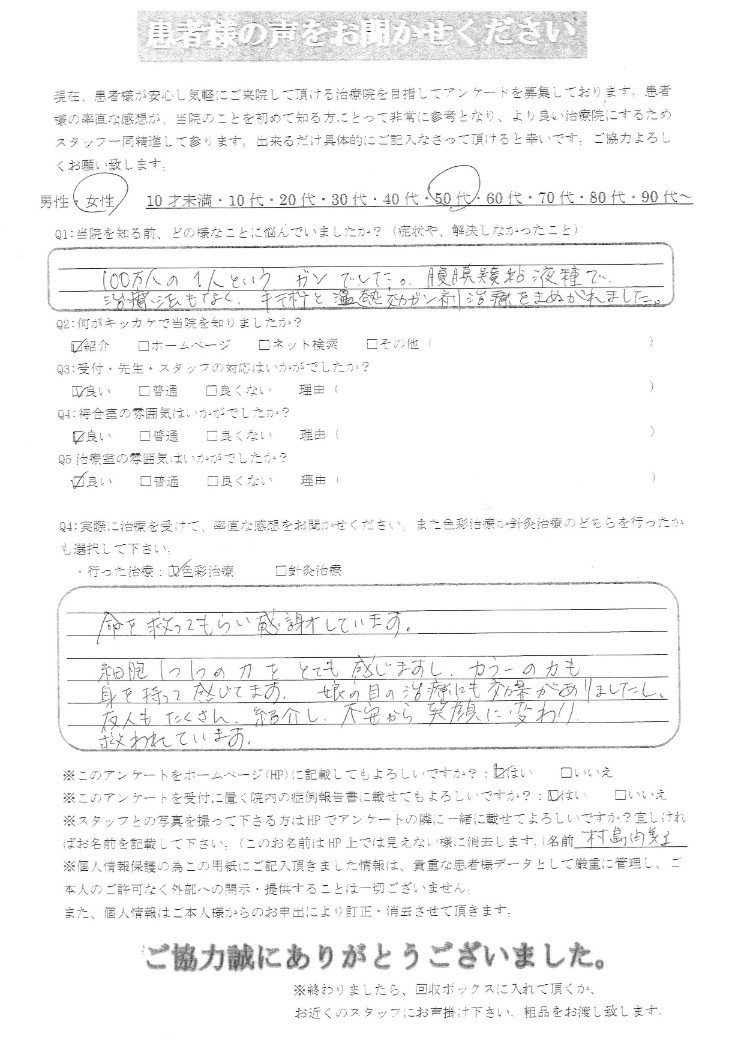 患者様の声をお聞かせください
現在、患者様が安心し気軽にご来院して頂ける治療院を目指してアンケートを募集しております。患者
様の率直な感想が、当院のことを初めて知る方にとって非常に参考となり、より良い治療院にするため
スタッフ一同精進して参ります。出来るだけ具体的にご記入なさって頂けると幸いです。ご協力よろし
くお願い致します。
男性・女性 10才未満・10代・20代・30代・40代・50代・60代・70代・80代・90代～
Q1:当院を知る前、どの様なことに悩んでいましたか？（症状や、解決しなかったこと）
100万人の1人という ガンでした。腹膜偽粘液種で、
治療法もなく、 と温熱 抗ガン剤治療をまぬがれました。
Q2:何がキッカケで当院を知りましたか？
☑紹介 □ホームページ □ネット検索 □その他（ ）
Q3:受付・先生・スタッフの対応はいかがでしたか？
☑良い □普通 □良くない 理由（ ）
Q4:待合室の雰囲気はいかがでしたか？
☑良い □普通 □良くない 理由（ ）
Q5治療室の雰囲気はいかがでしたか？
☑良い □普通 □良くない 理由（ ）
Q4:実際に治療を受けて、率直な感想をお聞かせください。また色彩治療か針灸治療のどちらを行ったか
も選択して下さい。
・行った治療：☑色彩治療 □針灸治療
命を救ってもらい感謝しています。
細胞1つ1つの力を とても感じますし、カラーの力も
身を持って感じてます。娘の目の治療にも効果がありましたし、
友人もたくさん、紹介し、不安から笑顔に変わり
救われています。
※このアンケートをホームページ(HP)に記載してもよろしいですか？：☑はい □いいえ
※このアンケートを受付に置く院内の症例報告書に載せてもよろしいですか？：☑はい □いいえ
※スタッフとの写真を撮って下さる方はHPでアンケートの隣に一緒に載せてよろしいですか？宜しけれ
ばお名前を記載して下さい。(このお名前はHP上では見えない様に消去します。)名前 村島由美
※個人情報保護の為この用紙にご記入頂きました情報は、貴重な患者様データとして厳重に管理し、ご
本人のご許可なく外部への開示・提供することは一切ございません。
また、個人情報はご本人様からのお申出により訂正・消去させて頂きます。
ご協力誠にありがとうございました。
※終わりましたら、回収ボックスに入れて頂くか、
お近くのスタッフにお声掛け下さい。粗品をお渡し致します。